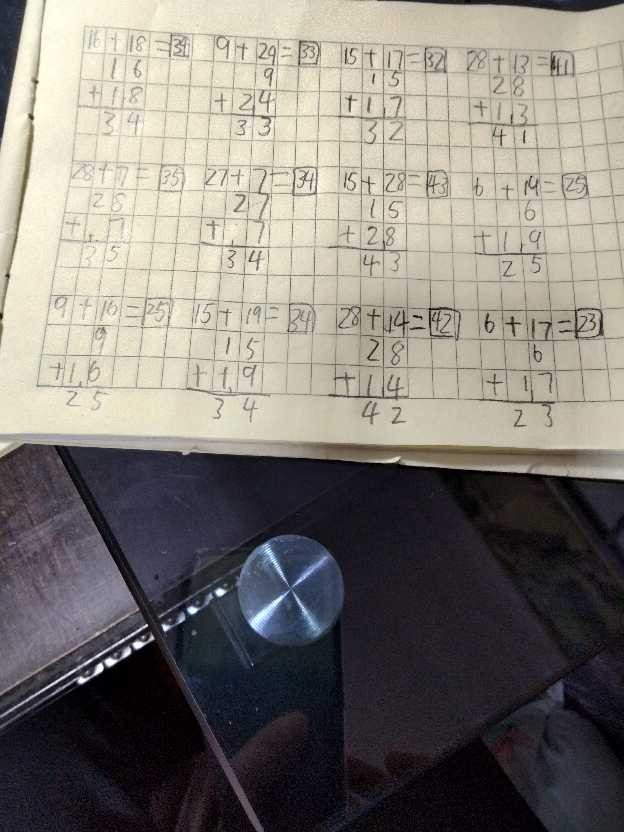 16+18=34 9+24=33 15+17=32 28+13=41
16 9 15 28
+18 +24 +17 +13
34 33 32 41
28+7=35 27+7=34 15+28=43 6+19=25
28 27 15 6
+7 +7 +28 +19
35 34 43 25
9+16=25 15+19=34 28+14=42 6+17=23
9 15 28 6
+16 +19 +14 +17
25 34 42 23